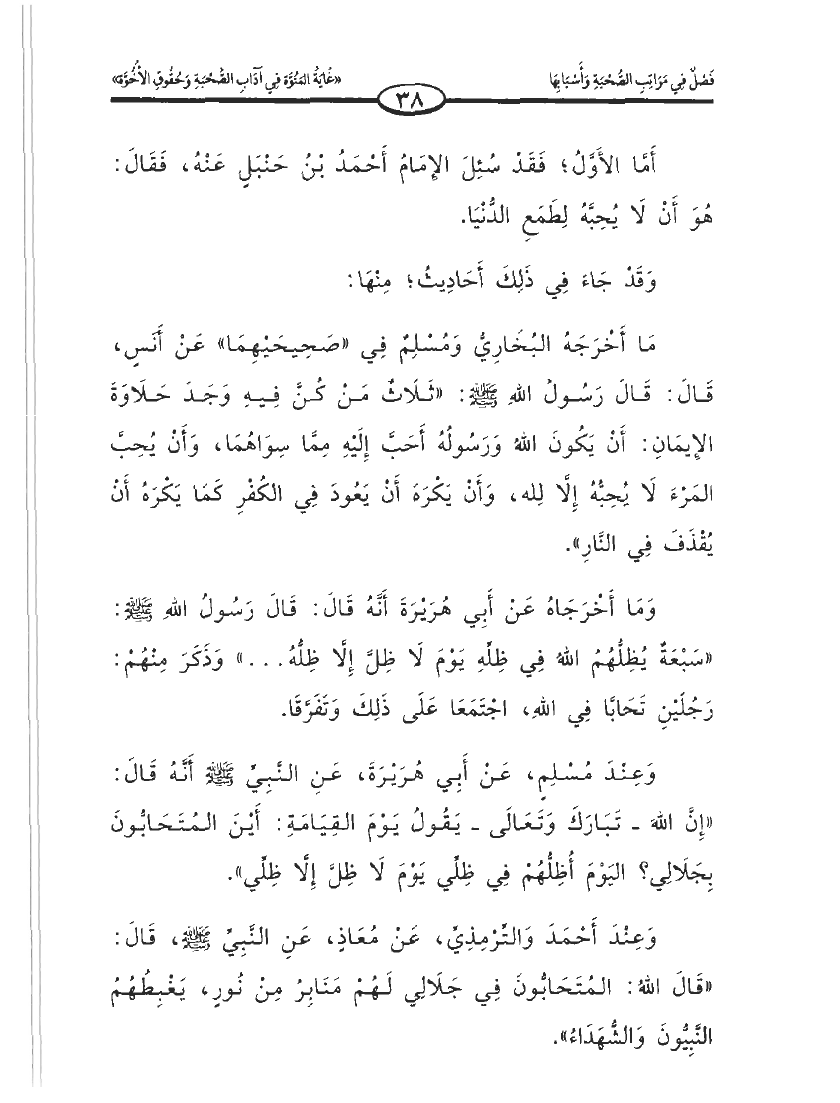 فَصْلٌ فِي مَرَاتِبِ الصُّحْبَةِ وَأَسْبَابِهَا
«غَايَةُ المَنُوَّة فِي آدَابِ الصُّحْبَةِ وَحُقُوقِ الأُخُوَّة»
٣٨
أَمَّا الأَوَّلُ؛ فَقَدْ سُئِلَ الإِمَامُ أَحْمَدُ بْنُ حَنْبَلٍ عَنْهُ، فَقَالَ:
هُوَ أَنْ لَا يُحِبَّهُ لِطَمَعِ الدُّنْيَا.
وَقَدْ جَاءَ فِي ذَلِكَ أَحَادِيثُ؛ مِنْهَا:
مَا أَخْرَجَهُ البُخَارِيُّ وَمُسْلِمٌ فِي «صَحِيحَيْهِمَا» عَنْ أَنَسٍ،
قَالَ: قَالَ رَسُولُ اللهِ ﷺ: «ثَلَاثٌ مَنْ كُنَّ فِيهِ وَجَدَ حَلَاوَةَ
الإِيمَانِ: أَنْ يَكُونَ اللهُ وَرَسُولُهُ أَحَبَّ إِلَيْهِ مِمَّا سِوَاهُمَا، وَأَنْ يُحِبَّ
المَرْءَ لَا يُحِبُّهُ إِلَّا لِله، وَأَنْ يَكْرَهَ أَنْ يَعُودَ فِي الكُفْرِ كَمَا يَكْرَهُ أَنْ
يُقْذَفَ فِي النَّارِ».
وَمَا أَخْرَجَاهُ عَنْ أَبِي هُرَيْرَةَ أَنَّهُ قَالَ: قَالَ رَسُولُ اللهِ ﷺ:
«سَبْعَةٌ يُظِلُّهُمُ اللهُ فِي ظِلِّهِ يَوْمَ لَا ظِلَّ إِلَّا ظِلُّهُ...» وَذَكَرَ مِنْهُمْ:
رَجُلَيْنِ تَحَابَّا فِي اللهِ، اجْتَمَعَا عَلَى ذَلِكَ وَتَفَرَّقَا.
وَعِنْدَ مُسْلِمٍ، عَنْ أَبِي هُرَيْرَةَ، عَنِ النَّبِيِّ ﷺ أَنَّهُ قَالَ:
«إِنَّ اللهَ - تَبَارَكَ وَتَعَالَى - يَقُولُ يَوْمَ القِيَامَةِ: أَيْنَ المُتَحَابُّونَ
بِجَلَالِي؟ اليَوْمَ أُظِلُّهُمْ فِي ظِلِّي يَوْمَ لَا ظِلَّ إِلَّا ظِلِّي».
وَعِنْدَ أَحْمَدَ وَالتِّرْمِذِيِّ، عَنْ مُعَاذٍ، عَنِ النَّبِيِّ ﷺ، قَالَ:
«قَالَ اللهُ: المُتَحَابُّونَ فِي جَلَالِي لَهُمْ مَنَابِرُ مِنْ نُورٍ، يَغْبِطُهُمُ
النَّبِيُّونَ وَالشُّهَدَاءُ».